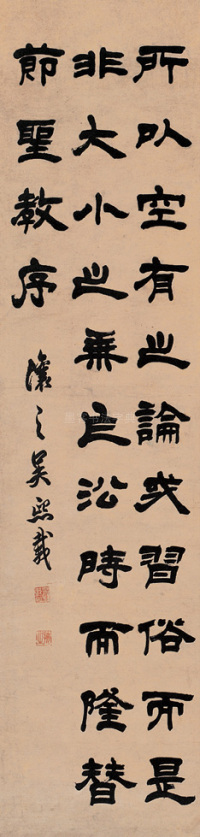 所以空有之論或習俗而是
非大小之乘乍沿時而隆替
節聖教序
讓之吳熙載